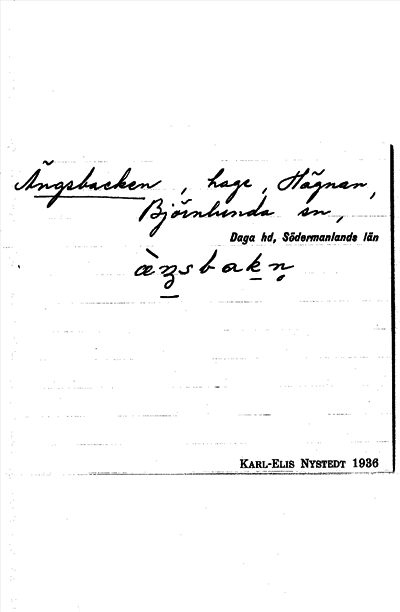 Ängsbacken, hage, Hägnan,
Björnlunda sn,
Daga hd, Södermanlands län
æ̀ŋsbakn̥
KARL-ELIS NYSTEDT 1936